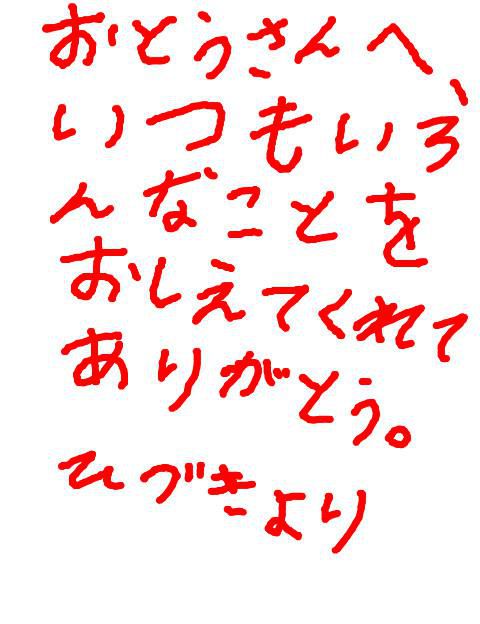 おとうさんへ、
いつもいろ
んなことを
おしえてくれて
ありがとう。
ひづきより